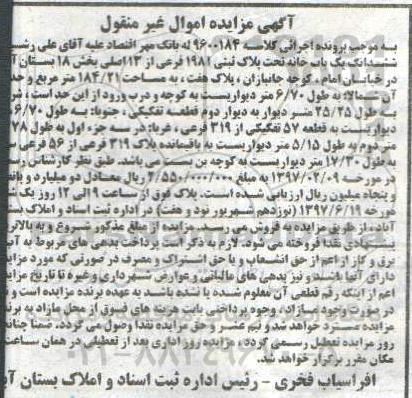 آگهی مزایده اموال غیر منقول
به موجب پرونده اجرائی کلاسه ۹۶۰۰۱۸۴ له بانک مهر اقتصاد علیه آقای علی
ششدانگ یک باب خانه تحت پلاک ثبتی ۱۹۸۱ فرعی از ۱۳ اصلی بخش ۱۸ بستان
در خیابان امام، کوچه جانبازان، پلاک هفت، به مساحت ۱۸۴/۲۱ متر مربع و
آن شمالا: به طول ۶/۷۰ متر دیواریست به کوچه و درب ورود از این حد است،
به طول ۲۵/۲۵ متر دیوار به دیوار دوم قطعه تفکیکی، جنوبا: به طول ۶/۷۰
دیواریست به قطعه ۵۷ تفکیکی از ۳۱۹ فرعی، غربا: در سه جزء اول به طول
متر دوم به طول ۵/۱۵ متر دیواریست به باقیمانده پلاک ۳۱۹ فرعی از ۵۶ فرعی
به طول ۱۷/۳۰ متر دیواریست به کوچه بن بست می باشد. طبق نظر کارشناس
در مورخه ۱۳۹۷/۰۲/۰۹ به مبلغ ۲/۵۵۰/۰۰۰/۰۰۰ ریال معادل دو میلیارد و
و پنجاه میلیون ریال ارزیابی شده است. پلاک فوق از ساعت ۹ الی ۱۲ روز
مورخه ۱۳۹۷/۶/۱۹ (نوزدهم شهریور نود و هفت) در اداره ثبت اسناد و املاک
آباد، از طریق مزایده به فروش می رسد. مزایده از مبلغ مذکور شروع و به
پیشنهادی نقدا فروخته می شود. لازم به ذکر است پرداخت بدهی های مربوط به
برق و گاز اعم از حق انشعاب و یا حق اشتراک و مصرف در صورتی که مورد
دارای آنها باشد و نیز بدهی های مالیاتی و عوارض شهرداری و غیره تا تاریخ
اعم از اینکه رقم قطعی آن معلوم شده یا نشده باشد به عهده برنده مزایده است و
در صورت وجود مازاد، وجوه پرداختی بابت هزینه های فوق از محل مازاد به
مزایده مسترد خواهد شد و نیم عشر و حق مزایده نقدا وصول می گردد. ضمنا
روز مزایده تعطیل رسمی گردد، مزایده روز اداری بعد از تعطیلی در همان ساعت
مکان مقرر برگزار خواهد شد.
افراسیاب فخری - رئیس اداره ثبت اسناد و املاک بستان